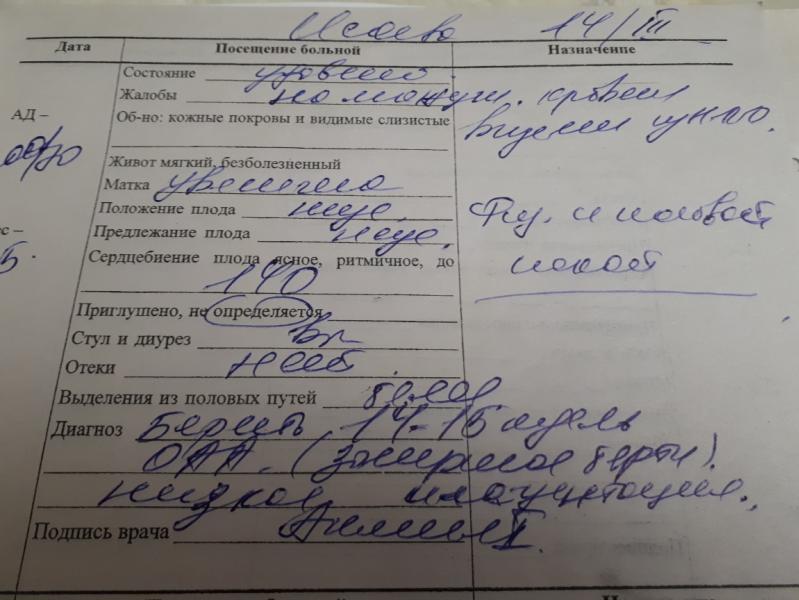 Исаева 14/III
Дата Посещение больной Назначение
Состояние удовлетв.
Жалобы на мажущ. кровян
АД – Об-но: кожные покровы и видимые слизистые
Живот мягкий, безболезненный
Матка увеличена
Положение плода неус.
Предлежание плода неус. Физ. и половой
Сердцебиение плода ясное, ритмичное, до покой
140
Приглушено, не определяется
Стул и диурез
Отеки нет.
Выделения из половых путей белые
Диагноз Берем-ть 14-15 недель
ОАА. (замершая берем).
низкая плацентация.
Подпись врача Анемия I.